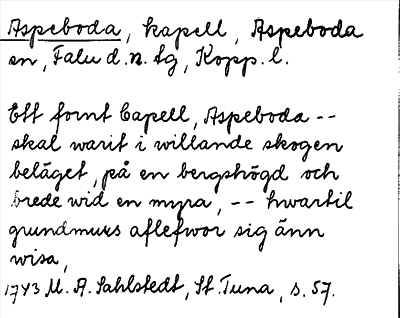 Aspeboda, kapell, Aspeboda
sn, Falu d.n. tg, Kopp. l.
Ett fornt Capell, Aspeboda --
skal warit i willande skogen
beläget, på en bergshögd och
brede wid en myra, -- hwartil
grundmurs aflefwor sig änn
wisa,
1743 U. A. Sahlstedt, St. Tuna, s. 57.